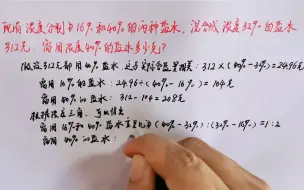 现有浓度分别为16%和40%的两种盐水,混合成浓度32%的盐水
312克,需用浓度40%的盐水多少克?
假设312克都用40%盐水,这与实际含盐量相差:312×(40%-32%)=24.96克
需用16%的盐水:24.96÷(40%-16%)=104克
需用40%的盐水:312-104=208克
根据浓度三角,可以得出
需用16%和40%盐水重量比为(40%-32%):(32%-16%)=1:2
需用40%的盐水: